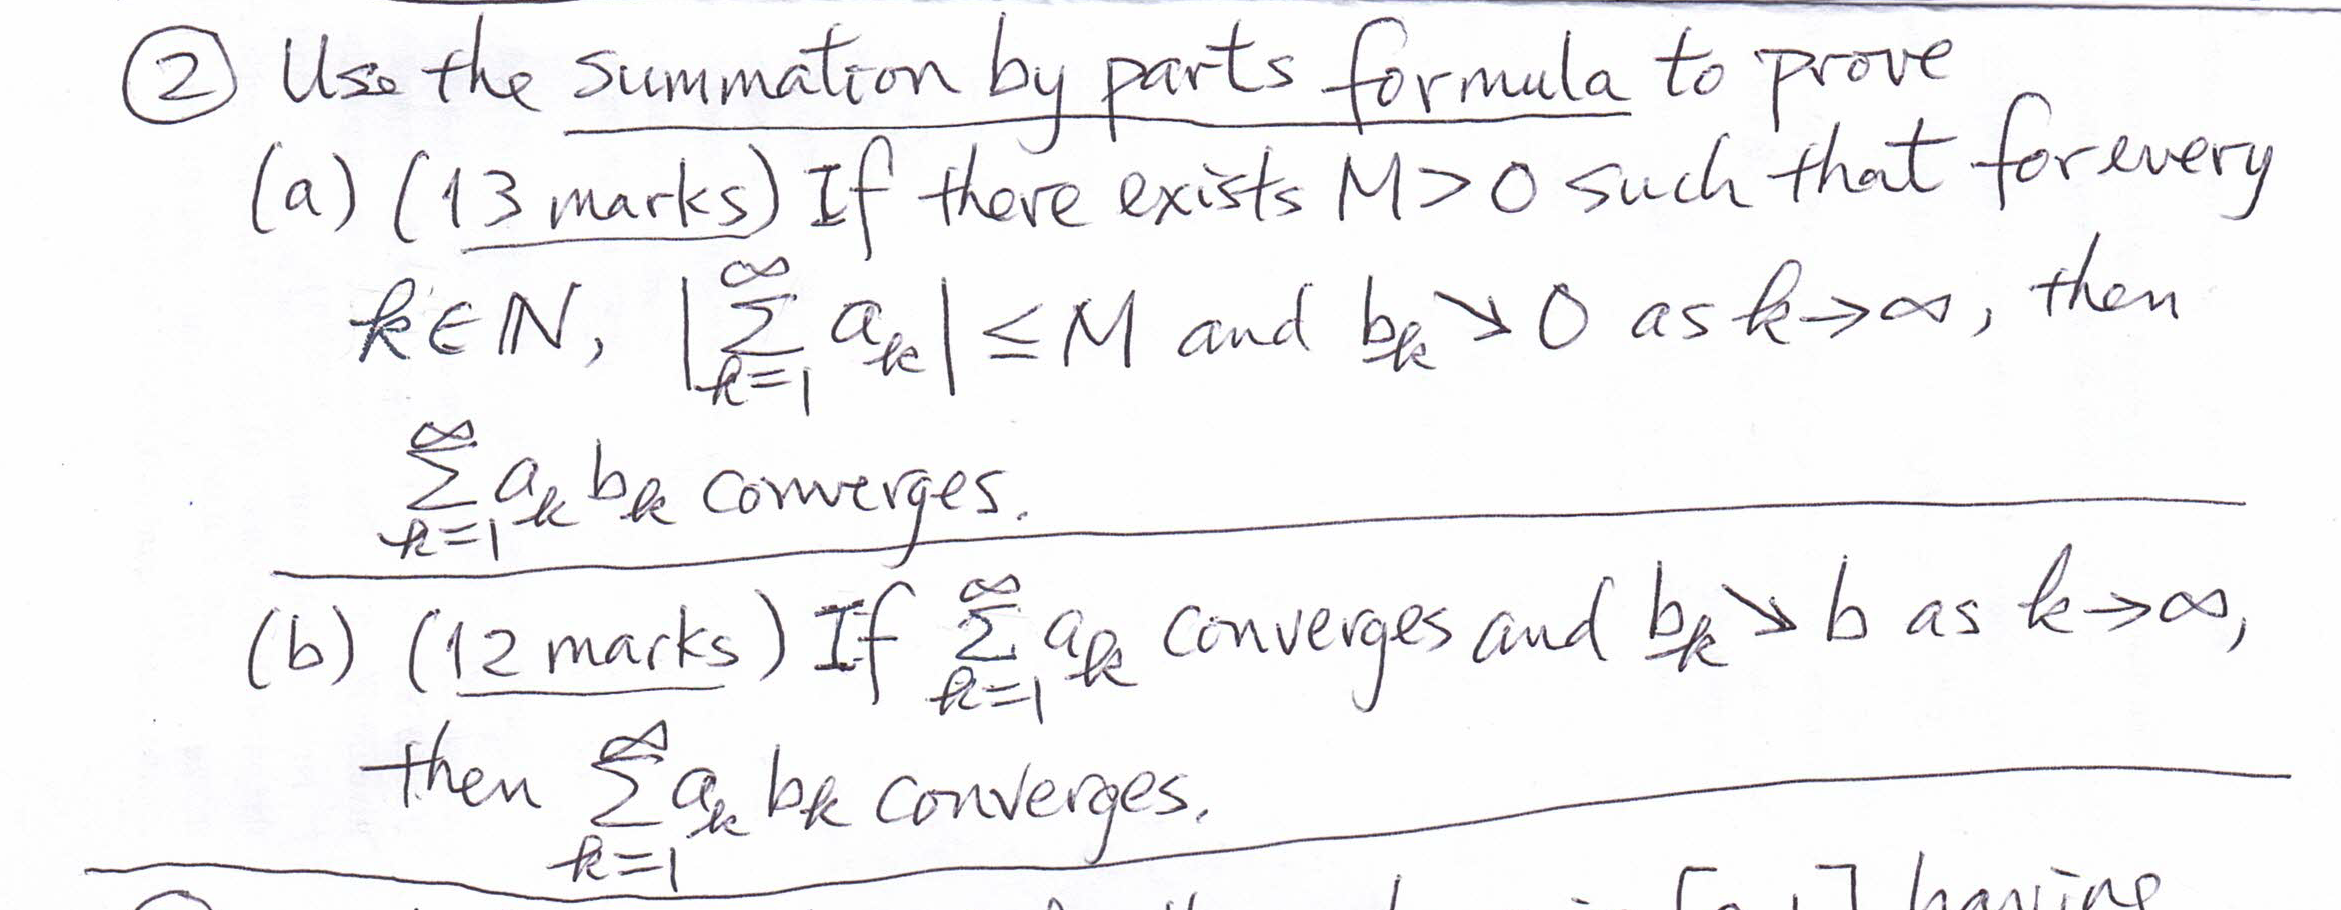 ② Use the summation by parts formula to prove
(a) (13 marks) If there exists M>0 such that for every
k∈ℕ, |∑_{k=1}^{∞} a_k| ≤ M and b_k ↘ 0 as k→∞, then
∑_{k=1}^{∞} a_k b_k converges.
(b) (12 marks) If ∑_{k=1}^{∞} a_k converges and b_k ↘ b as k→∞,
then ∑_{k=1}^{∞} a_k b_k converges.
having